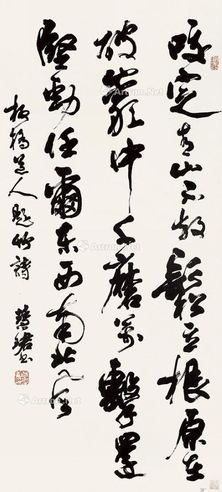 咬定青山不放鬆立根原在
破巖中千磨萬擊還
堅勁任爾東西南北風
板橋道人題竹詩